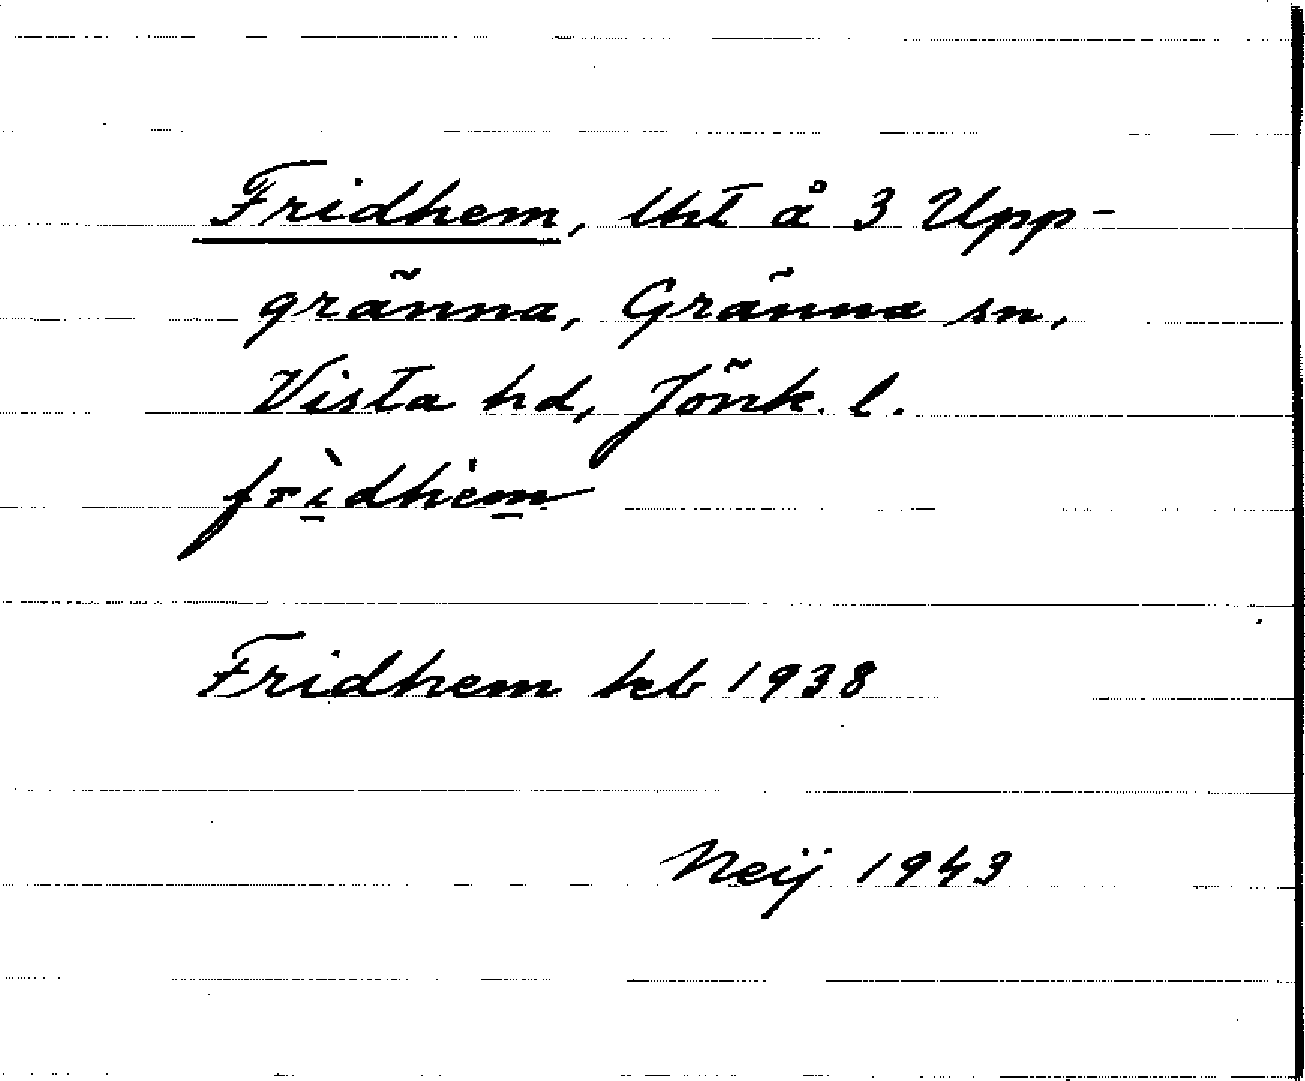 Fridhem, lht å 3 Upp-
gränna, Gränna sn,
Vista hd, Jönk. l.
frìdhèm
Fridhem kb 1938
Neij 1943